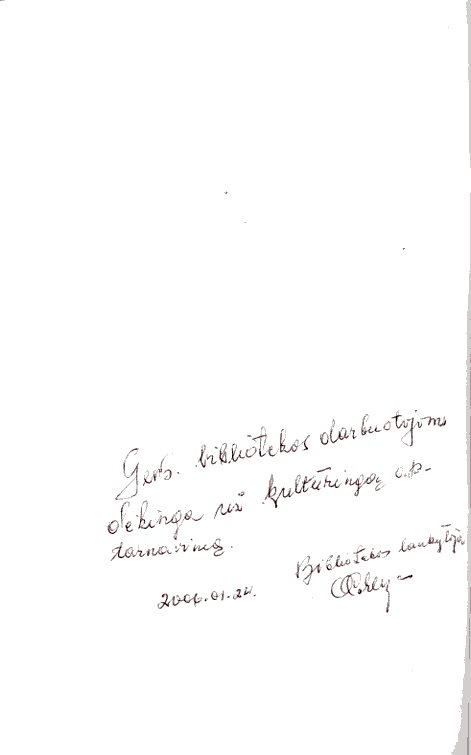 Gerb. bibliotekos darbuotojoms
dėkinga už kultūringą ap-
tarnavimą.
Bibliotekos lankytoja
2006.01.24.